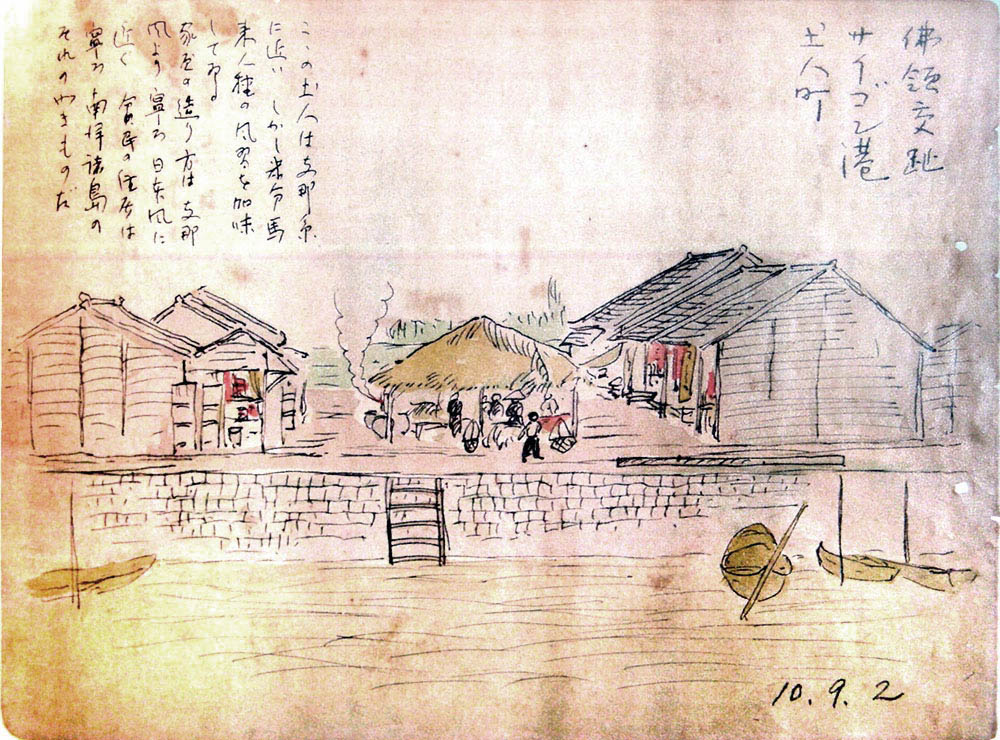 佛領交趾
サイゴン港
土人町
ここの土人は支那系
に近い しかし米分馬
来人種の風習を加味
してゐる
家屋の造り方は支那
風より寧ろ日本風に
近く 貧民の住居は
寧ろ南洋諸島の
それの如きものだ
10.9.2